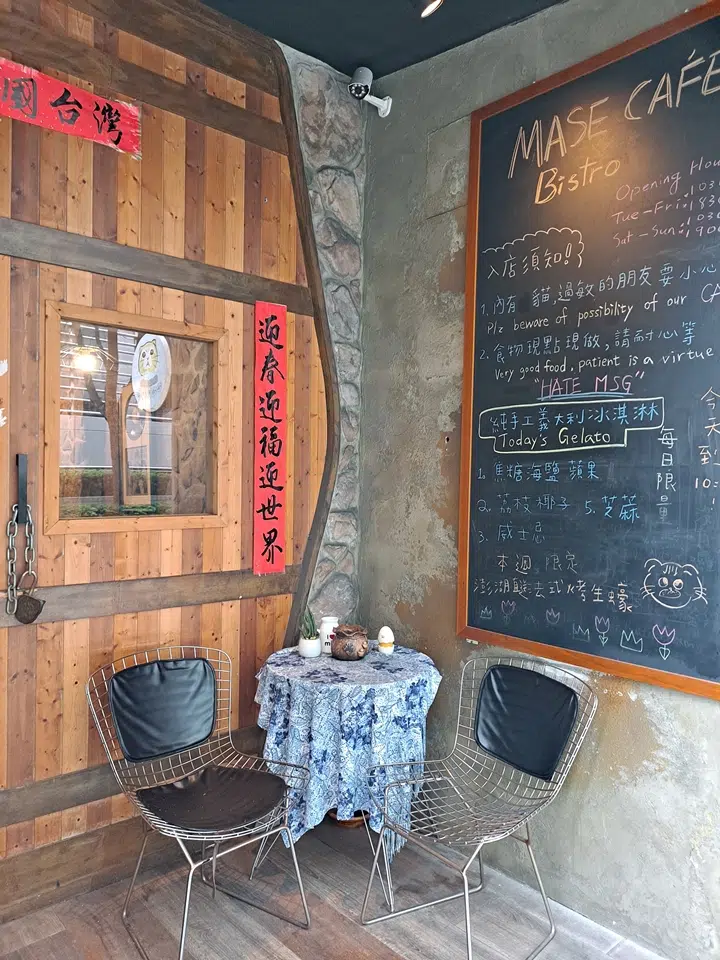 國台灣
迎春迎福迎世界
MASE CAFÉ
Bistro
Opening Hou
Tue-Fri:
Sat-Sun:
入店須知!
1. 內有 貓,過敏的朋友要小心
Plz beware of possibility of our CA
2. 食物現點現做,請耐心等
Very good food, patient is a virtue
"HATE MSG"
純手工義大利冰淇淋
Today's Gelato
1. 焦糖海鹽蘋果
2. 荔枝椰子 5. 芝蔴
3. 威士忌
每日限量
今天到
10:
本週限定
澎湖 法式 烤生蠔